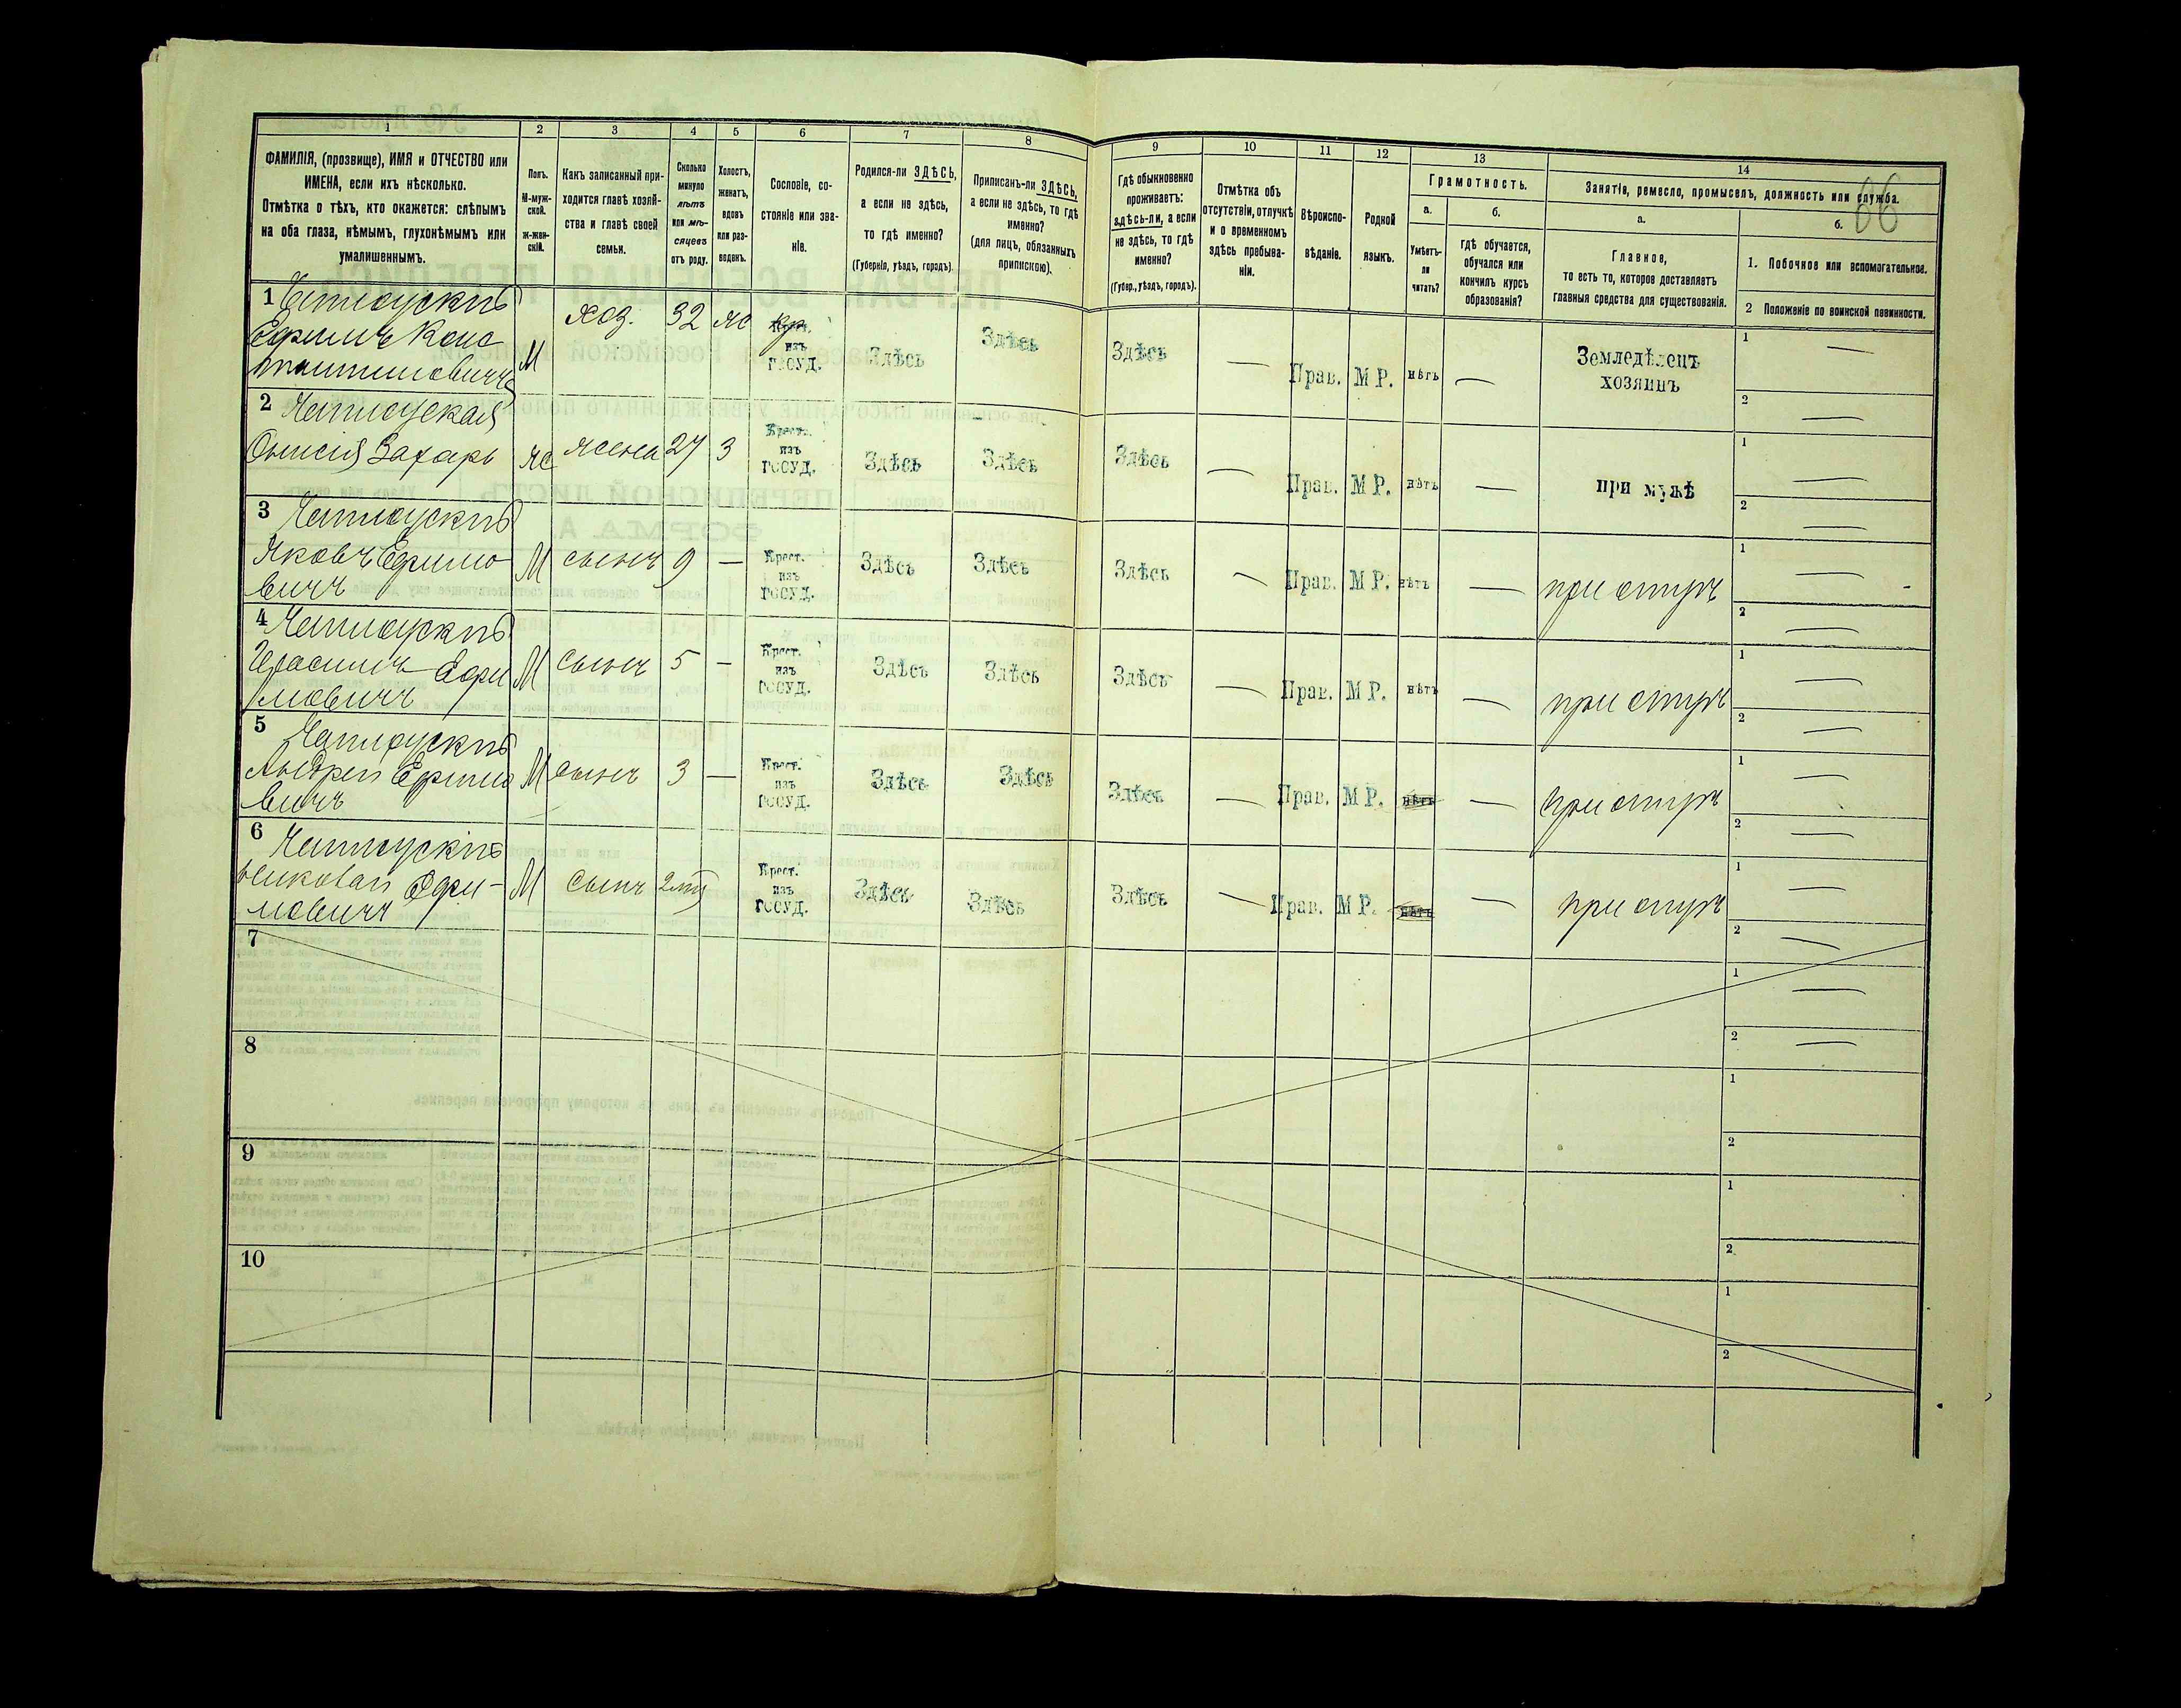 66
1 2 3 4 5 6 7 8 9 10 11 12 13 14
ФАМИЛІЯ, (прозвище), ИМЯ и ОТЧЕСТВО или
ИМЕНА, если ихъ нѣсколько.
Отмѣтка о тѣхъ, кто окажется: слѣпымъ
на оба глаза, нѣмымъ, глухонѣмымъ или
умалишеннымъ.
Полъ.
М-муж-
ской.
ж-жен-
скій.
Какъ записанный при-
ходится главѣ хозяй-
ства и главѣ своей
семьи.
Сколько
минуло
лѣтъ
или мѣ-
сяцевъ
отъ роду.
Холостъ,
женатъ,
вдовъ
или раз-
веденъ.
Сословіе, со-
стояніе или зва-
ніе.
Родился-ли ЗДѢСЬ,
а если не здѣсь,
то гдѣ именно?
(Губернія, уѣздъ, городъ).
Приписанъ-ли ЗДѢСЬ,
а если не здѣсь, то гдѣ
именно?
(для лицъ, обязанныхъ
припискою).
Гдѣ обыкновенно
проживаетъ:
здѣсь-ли, а если
не здѣсь, то гдѣ
именно?
(Губер., уѣздъ, городъ).
Отмѣтка объ
отсутствіи, отлучкѣ
и о временномъ
здѣсь пребыва-
ніи.
Вѣроиспо-
вѣданіе.
Родной
языкъ.
Грамотность.
а.
Умѣетъ-
ли
читать?
б.
гдѣ обучается,
обучался или
кончилъ курсъ
образованія?
Занятіе, ремесло, промыселъ, должность или служба.
а.
Главное,
то есть то, которое доставляетъ
главныя средства для существованія.
б.
1. Побочное или вспомогательное.
2 Положеніе по воинской повинности.
1
Ефимъ Конс
тантиновичъ
М хоз. 32 ж кр
Крест.
изъ
ГОСУД.
Здѣсь Здѣсь Здѣсь — Прав. М Р. нѣтъ —
Земледѣлецъ
хозяинъ
1 —
2 —
2
Захаръ
ж жена 27 З
Крест.
изъ
ГОСУД.
Здѣсь Здѣсь Здѣсь — Прав. М Р. нѣтъ — при мужѣ
1 —
2 —
3
Яковъ Ефимо
вичъ
М сынъ 9 —
Крест.
изъ
ГОСУД.
Здѣсь Здѣсь Здѣсь — Прав. М Р. нѣтъ — при отцѣ
1 —
2 —
4
Ефи
мовичъ
М сынъ 5 —
Крест.
изъ
ГОСУД.
Здѣсь Здѣсь Здѣсь — Прав. М Р. нѣтъ — при отцѣ
1 —
2 —
5
Андрей Ефимо
вичъ
М сынъ 3 —
Крест.
изъ
ГОСУД.
Здѣсь Здѣсь Здѣсь — Прав. М Р. нѣтъ — при отцѣ
1 —
2 —
6
Николай Ефи-
мовичъ
М сынъ
Крест.
изъ
ГОСУД.
Здѣсь Здѣсь Здѣсь — Прав. М Р. нѣтъ — при отцѣ
1 —
2 —
7
1 —
2 —
8
1
2
9
1
2
10
1
2